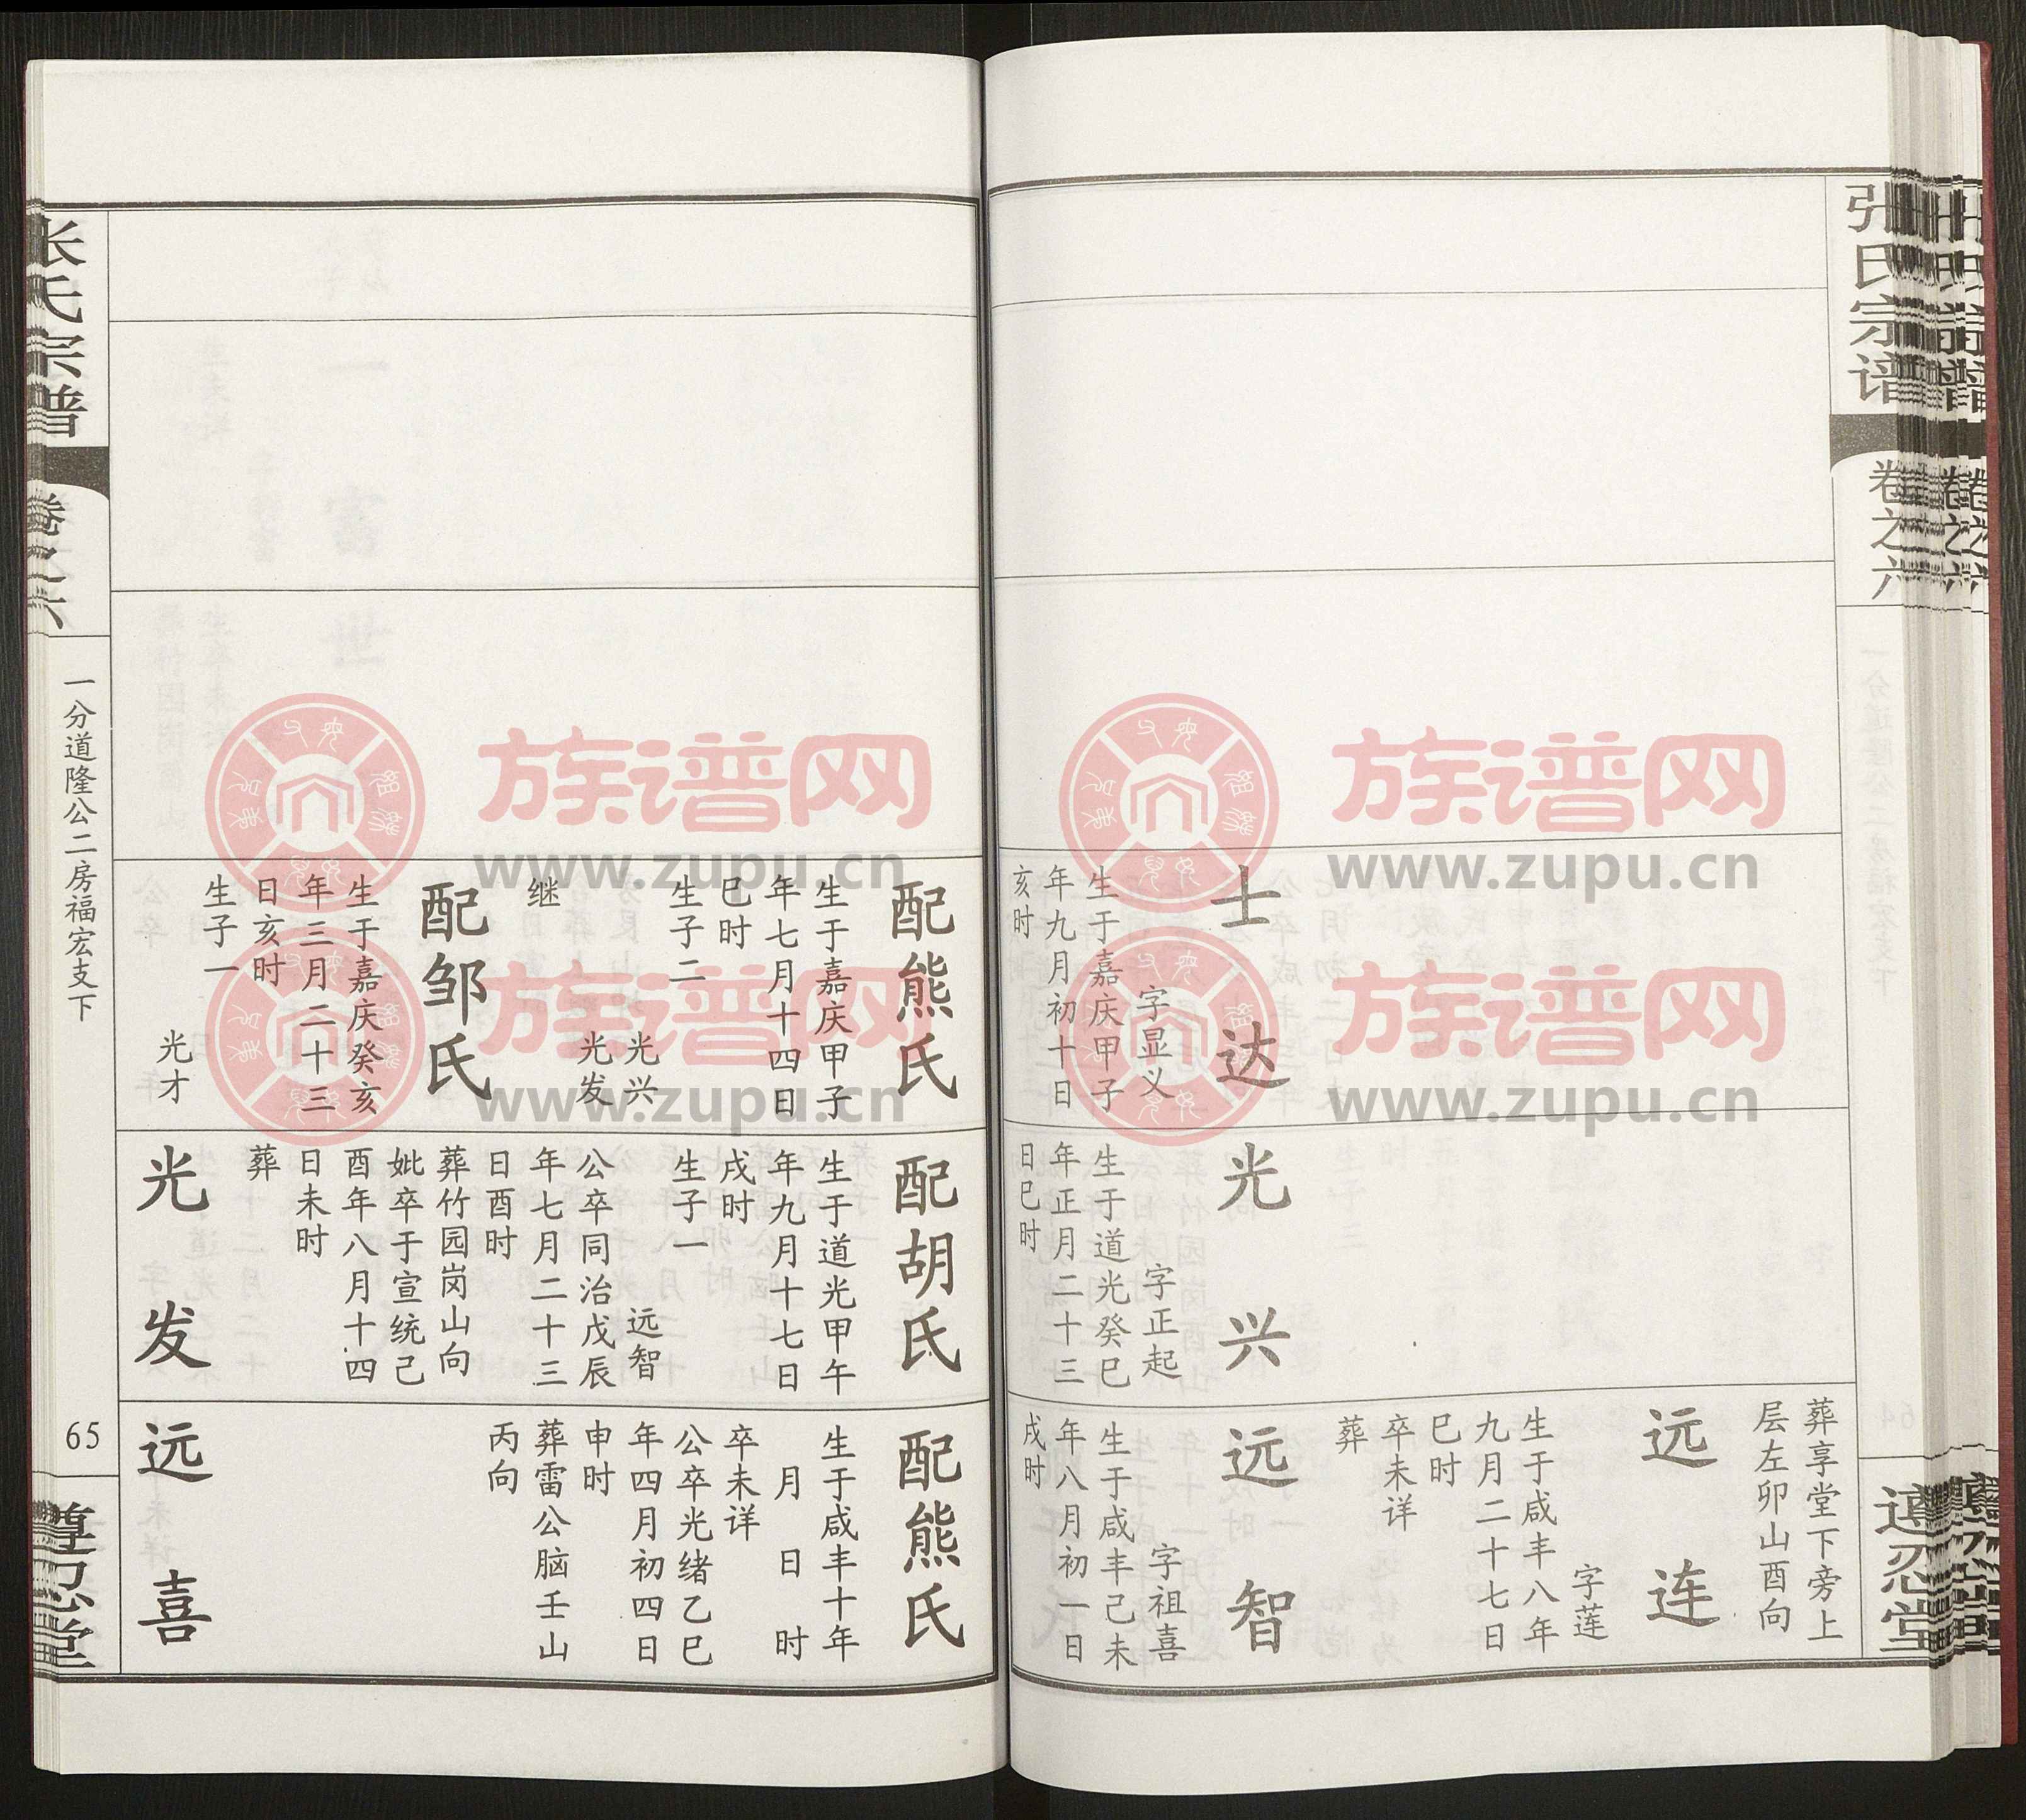 张氏宗谱
卷之六
遵忍堂
士达
字显义
生于嘉庆甲子
年九月初十日
亥时
光兴
字正起
生于道光癸巳
年正月二十三
日巳时
葬享堂下旁上
层左卯山酉向
远连
字莲
生于咸丰八年
九月二十七日
巳时
卒未详
葬
远智
字祖喜
生于咸丰己未
年八月初一日
戌时
配熊氏
生于嘉庆甲子
年七月十四日
巳时
生子二
光兴
光发
继
配邹氏
生于嘉庆癸亥
年三月二十三
日亥时
生子一
光才
配胡氏
生于道光甲午
年九月十七日
戌时
生子一
远智
公卒同治戊辰
年七月二十三
日酉时
葬竹园岗山向
妣卒于宣统己
酉年八月十四
日未时
葬
光发
配熊氏
生于咸丰十年
月 日 时
卒未详
公卒光绪乙巳
年四月初四日
申时
葬雷公脑壬山
丙向
远喜
张氏宗谱
卷之六
一分道隆公二房福宏支下
65
遵忍堂
族谱网
www.zupu.cn
族谱网
www.zupu.cn
族谱网
www.zupu.cn
族谱网
www.zupu.cn